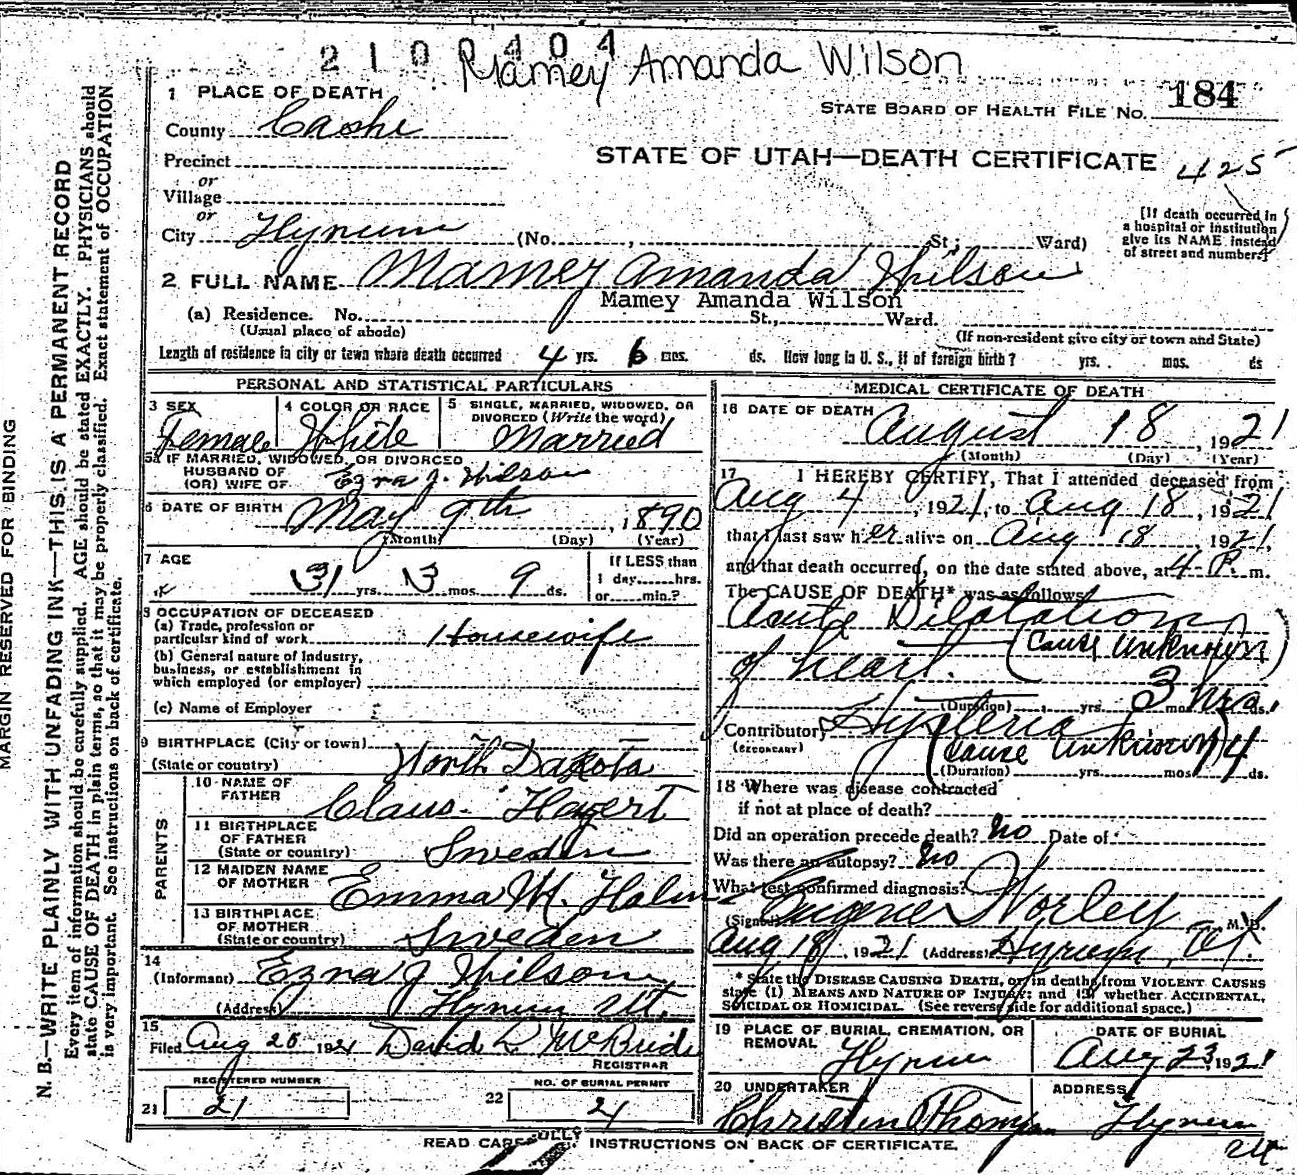 2100404
Mamey Amanda Wilson
1 PLACE OF DEATH
STATE BOARD OF HEALTH FILE NO. 184
County Cashe
STATE OF UTAH—DEATH CERTIFICATE 425
Precinct
or
Village
or
City Hyrum (No. , St; Ward)
[If death occurred in
a hospital or institution
give its NAME instead
of street and number.]
2 FULL NAME Mamey Amanda Wilson
Mamey Amanda Wilson
(a) Residence. No. St., Ward.
(Usual place of abode) (If non-resident give city or town and State)
Length of residence in city or town where death occurred 4 yrs. 6 mos. ds. How long in U. S., if of foreign birth? yrs. mos. ds
PERSONAL AND STATISTICAL PARTICULARS
3 SEX
Female
4 COLOR OR RACE
White
5 SINGLE, MARRIED, WIDOWED, OR
DIVORCED (Write the word)
Married
5a IF MARRIED, WIDOWED, OR DIVORCED
HUSBAND OF
(OR) WIFE OF Ezra J. Wilson
6 DATE OF BIRTH May 9th, 1890
(Month) (Day) (Year)
7 AGE
31 yrs. 3 mos. 9 ds.
If LESS than
1 day......hrs.
or......min.?
8 OCCUPATION OF DECEASED
(a) Trade, profession or
particular kind of work Housewife
(b) General nature of Industry,
business, or establishment in
which employed (or employer)
(c) Name of Employer
9 BIRTHPLACE (City or town)
(State or country) North Dakota
PARENTS
10 NAME OF
FATHER Claus Hagert
11 BIRTHPLACE
OF FATHER
(State or country) Sweden
12 MAIDEN NAME
OF MOTHER Emma M. Holm
13 BIRTHPLACE
OF MOTHER
(State or country) Sweden
14
(Informant) Ezra J Wilson
(Address) Hyrum Ut.
15
Filed Aug 28 1921 David L McBride
REGISTRAR
REGISTERED NUMBER
21 21
NO. OF BURIAL PERMIT
22 21
MEDICAL CERTIFICATE OF DEATH
16 DATE OF DEATH
August 18, 1921
(Month) (Day) (Year)
17 I HEREBY CERTIFY, That I attended deceased from
Aug 4, 1921, to Aug 18, 1921
that I last saw her alive on Aug 18 1921,
and that death occurred, on the date stated above, at 4 P. m.
The CAUSE OF DEATH* was as follows
Acute Dilatation
of heart. (Cause unknown)
(Duration) yrs 3 mos hrs. ds.
Contributory Hysteria
(SECONDARY) (cause unknown) 4
(Duration) yrs mos ds.
18 Where was disease contracted
if not at place of death?
Did an operation precede death? No Date of
Was there an autopsy? No
What test confirmed diagnosis?
(Signed) Eugene Worley M. D.
Aug 18, 1921 (Address) Hyrum, Ut.
* State the DISEASE CAUSING DEATH, or, in deaths from VIOLENT CAUSES
state (1) MEANS AND NATURE OF INJURY; and (2) whether ACCIDENTAL,
SUICIDAL OR HOMICIDAL. (See reverse side for additional space.)
19 PLACE OF BURIAL, CREMATION, OR
REMOVAL Hyrum
DATE OF BURIAL
Aug 23, 1921
20 UNDERTAKER
ADDRESS
Hyrum
READ CAREFULLY INSTRUCTIONS ON BACK OF CERTIFICATE.
MARGIN RESERVED FOR BINDING
N. B.—WRITE PLAINLY WITH UNFADING INK—THIS IS A PERMANENT RECORD
Every item of information should be carefully supplied. AGE should be stated EXACTLY. PHYSICIANS should
state CAUSE OF DEATH in plain terms, so that it may be properly classified. Exact statement of OCCUPATION
is very important. See instructions on back of certificate.